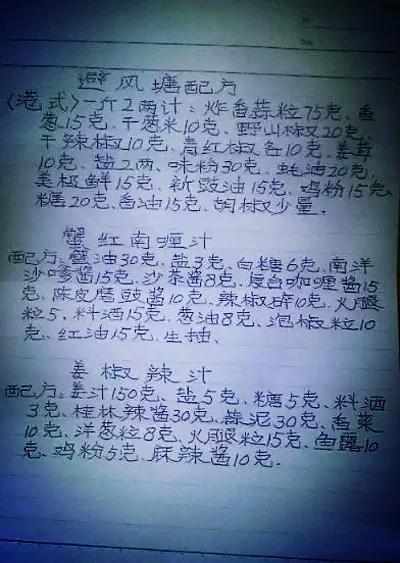 避风塘配方
(港式)一斤2两计:炸香蒜粒75克、香
葱15克、干葱米10克、野山椒20克、
干辣椒10克、青红椒各10克、姜茸
10克、盐2两、味粉30克、蚝油20克、
美极鲜15克、新豉油15克、鸡粉15克、
糖20克、香油15克、胡椒少量。
蟹红南喱汁
配方:蟹油30克、盐3克、白糖6克、南洋
沙嗲酱15克、沙茶酱8克、度白咖喱酱15
克、陈皮磨豉酱10克、辣椒碎10克、火腿
粒5、料酒15克、葱油8克、泡椒粒10
克、红油15克、生抽、
姜椒辣汁
配方:姜汁150克、盐5克、糖5克、料酒
3克、桂林辣酱30克、蒜泥30克、香菜
10克、洋葱粒8克、火腿粒15克、鱼露10
克、鸡粉5克、麻辣酱10克.